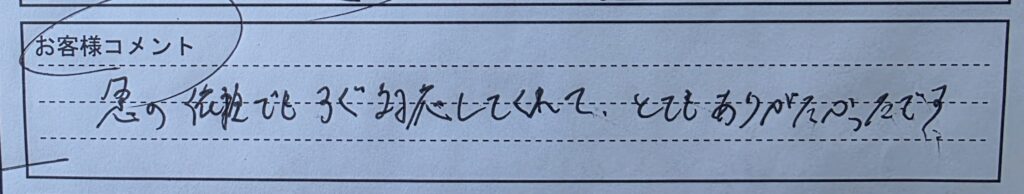 お客様コメント
急の依頼でもすぐ対応してくれて、とてもありがたかったです